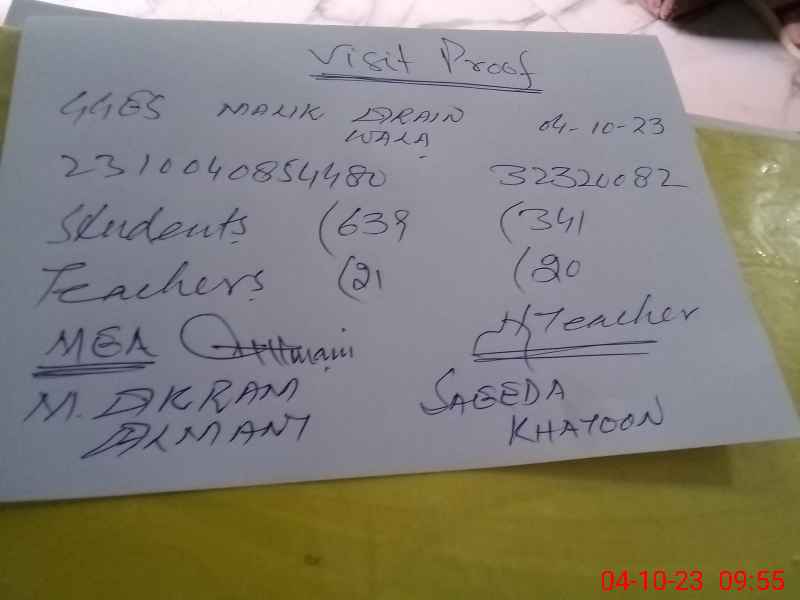 Visit Proof
GGES MALIK ARAIN 04-10-23
WALA
2310040854480 32320082
Students (639 (341
Teachers (21 (20
MEA H/Teacher
M. AKRAM SAEEDA
ALMANI KHATOON
04-10-23 09:55